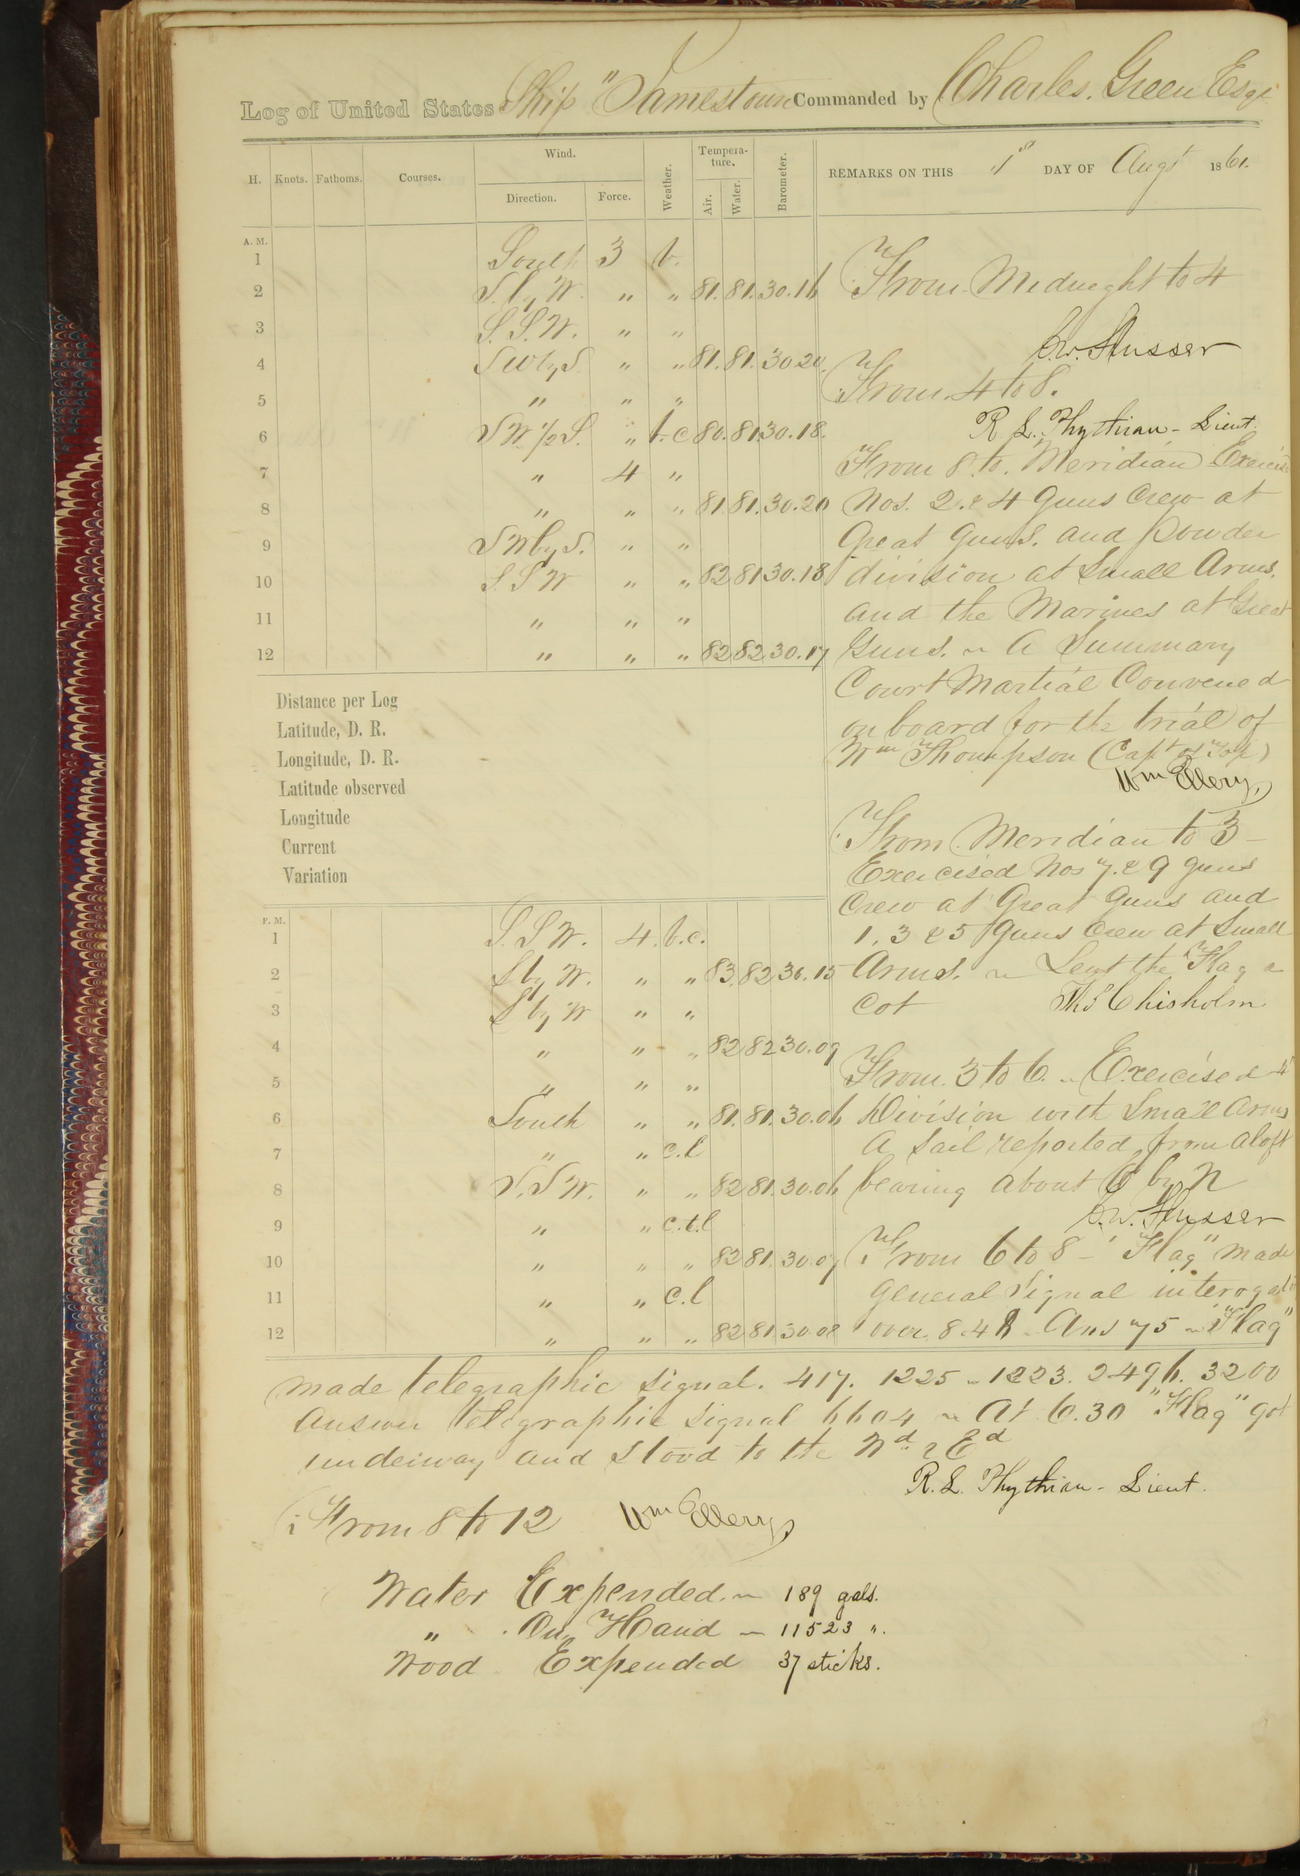 Log of United States Ship "Jamestown Commanded by Charles. Green Esqr
H. Knots. Fathoms. Courses. Wind. Direction. Force. Weather. Temperature. Air. Water. Barometer. REMARKS ON THIS 1st DAY OF Augt 1861.
A. M.
1 South 3 b.
2 S. by W. " " 81. 81. 30.16
3 S. S. W. " "
4 SW by S. " " 81. 81. 30.20
5 " " "
6 SW 1/2 S. " b. c 80. 81. 30.18.
7 " 4 "
8 " " " 81. 81. 30.20
9 SW by S. " "
10 S. S W " " 82 81 30.18
11 " " "
12 " " " 82 82 30.17
From Midnight to 4
C. W. Flusser
From. 4 to 8.
R L. Phythian - Lieut.
From 8 to. Meridian Exercise
Nos. 2. & 4 Guns Crew at
Great Guns. and Powder
division at Small Arms.
and the Marines at Great
Guns. ~ A Summary
Court Martial Convened
on board for the trial of
Wm Thompson (Capt of Top)
Wm Ellery,
Distance per Log
Latitude, D. R.
Longitude, D. R.
Latitude observed
Longitude
Current
Variation
From Meridian to 3 -
Exercised Nos 7. & 9 guns
Crew at Great Guns and
1. 3 & 5 Guns Crew at Small
Arms. ~ Sent the Flag a
Cot Thos Chisholm
P. M.
1 S. S W. 4. b. c.
2 S by W. " " 83. 82 30.15
3 S by W " "
4 " " " 82 82 30.09
5 " " "
6 South " " 81. 81. 30.06
7 " " c. l
8 S. S W. " " 82 81. 30.06
9 " " c. t. l
10 " " " 82 81. 30.07
11 " " c. l
12 " " " 82 81. 30.08
From. 3 to 6. ~ Exercised 4
Division with Small Arms
A Sail reported from aloft
bearing about E by N
C. W. Flusser
From 6 to 8 - "Flag" made
General Signal
over 848 Ans 75 ~ "Flag"
made telegraphic signal. 417. 1225 ~ 1223. 2496. 3200
Answer telegraphic signal 6604 ~ At 6.30 "Flag" got
underway and stood to the Nd & Ed
R. L. Phythian - Lieut.
From 8 to 12 Wm Ellery,
Water Expended. ~ 189 gals.
" On Hand ~ 11523 ".
Wood Expended 37 sticks.